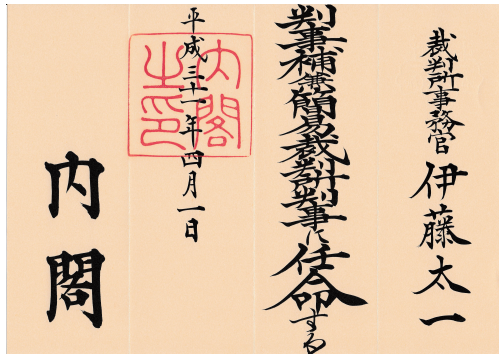 裁判所事務官 伊藤太一
判事補兼簡易裁判所判事に任命する
平成三十一年四月一日
内閣之印
内閣